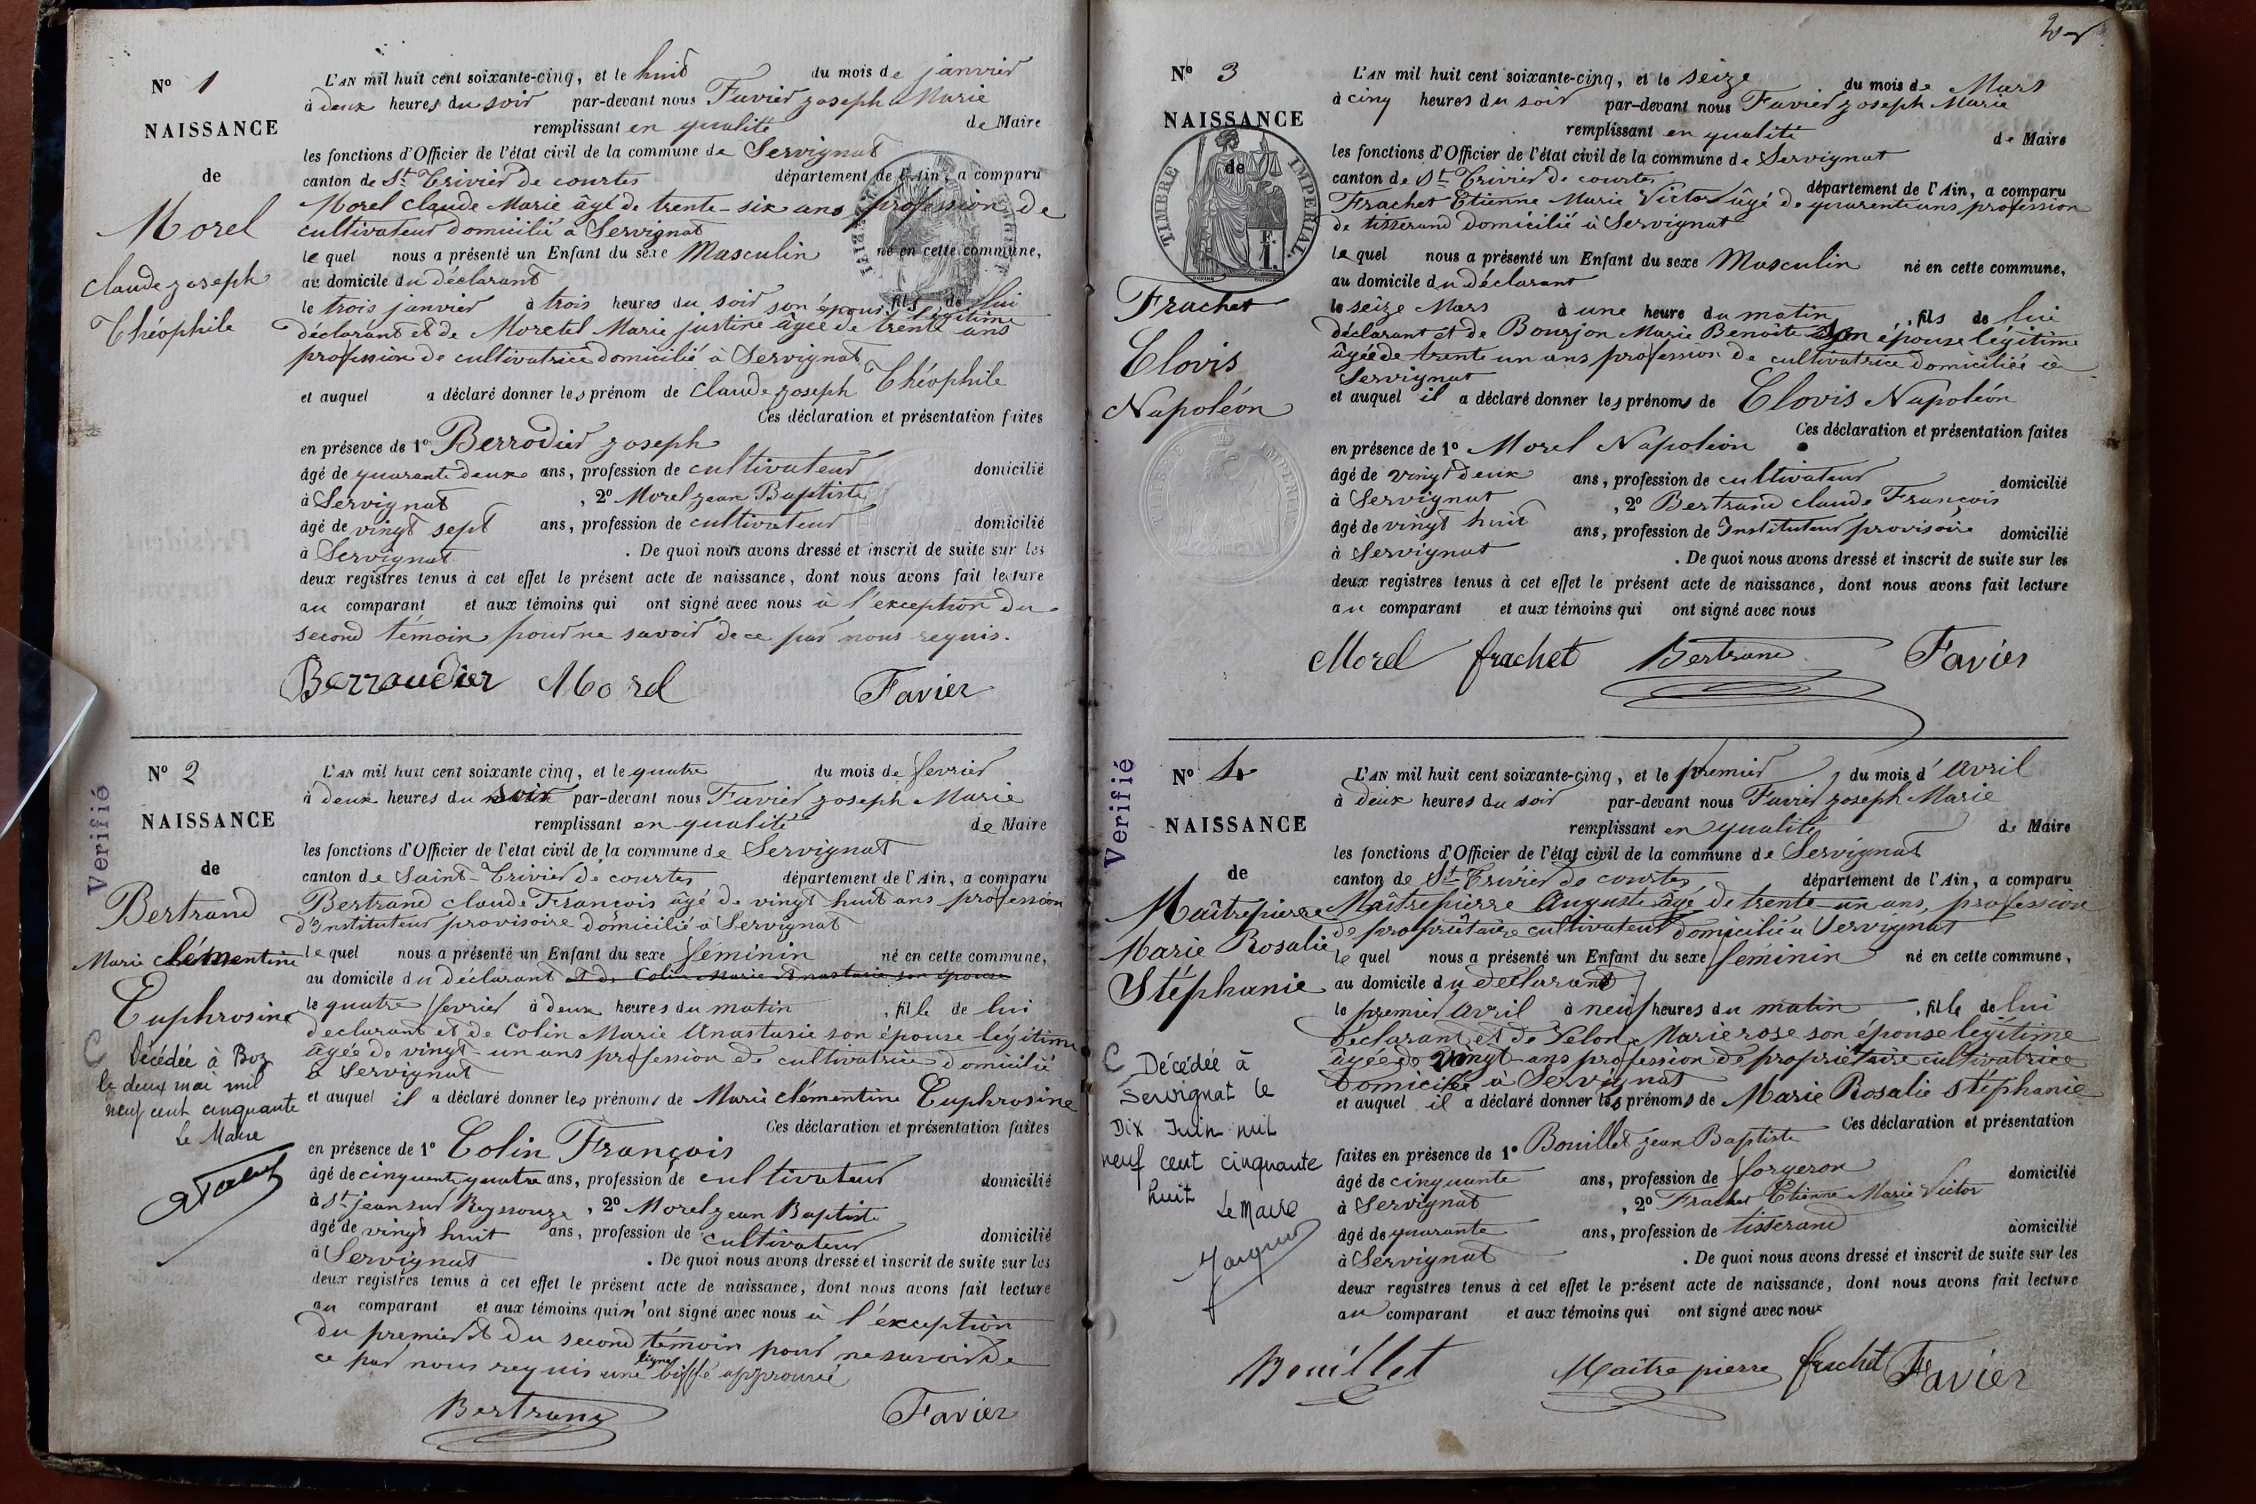 N° 1
NAISSANCE
de
Morel
Claude Joseph
Théophile
L'AN mil huit cent soixante-cinq, et le huit du mois de janvier
à deux heures du soir par-devant nous Favier Joseph Marie
remplissant en qualité de Maire
les fonctions d'Officier de l'état civil de la commune de Servignat
canton de St Trivier de courtes département de l'Ain, a comparu
Morel Claude Marie âgé de trente-six ans profession de
cultivateur domicilié à Servignat
le quel nous a présenté un Enfant du sexe Masculin né en cette commune,
au domicile du déclarant
le trois janvier à trois heures du soir fils de lui
son épouse légitime
déclarant et de Moretel Marie justine âgée de trente ans
profession de cultivatrice domicilié à Servignat
et auquel a déclaré donner les prénom de Claude Joseph Théophile
Ces déclaration et présentation faites
en présence de 1° Berrodier Joseph
âgé de quarante deux ans, profession de cultivateur domicilié
à Servignat , 2° Morel Jean Baptiste
âgé de vingt sept ans, profession de cultivateur domicilié
à Servignat . De quoi nous avons dressé et inscrit de suite sur les
deux registres tenus à cet effet le présent acte de naissance, dont nous avons fait lecture
au comparant et aux témoins qui ont signé avec nous à l'exception du
second témoin pour ne savoir de ce par nous requis.
Berraudier Morel Favier
N° 2
Verifié
NAISSANCE
de
Bertrand
Marie clémentine
Euphrosine
Décédée à Boz
le deux mai mil
neuf cent cinquante
Le Maire
L'AN mil huit cent soixante cinq, et le quatre du mois de fevrier
à deux heures du soir par-devant nous Favier Joseph Marie
remplissant en qualité de Maire
les fonctions d'Officier de l'état civil de la commune de Servignat
canton de Saint-Trivier de courtes département de l'Ain, a comparu
Bertrand Claude François âgé de vingt huit ans profession
d'Instituteur provisoire domicilié à Servignat
le quel nous a présenté un Enfant du sexe féminin né en cette commune,
au domicile du déclarant et de Colin Marie Anastasie son épouse
le quatre fevrier à deux heures du matin , fille de lui
declarant et de Colin Marie Anastasie son épouse légitime
âgée de vingt-un ans profession de cultivatrice domicilié
à Servignat
et auquel il a déclaré donner les prénoms de Marie clémentine Euphrosine
Ces déclaration et présentation faites
en présence de 1° Colin François
âgé de cinquante quatre ans, profession de cultivateur domicilié
à St jean sur Reyssouze , 2° Morel Jean Baptiste
âgé de vingt huit ans, profession de cultivateur domicilié
à Servignat . De quoi nous avons dressé et inscrit de suite sur les
deux registres tenus à cet effet le présent acte de naissance, dont nous avons fait lecture
au comparant et aux témoins qui n'ont signé avec nous à l'exception
du premier et du second témoin pour ne savoir de
ce par nous requis une ligne biffé approuvé
Bertrand Favier
N° 3
NAISSANCE
de
TIMBRE IMPERIAL
Frachet
Clovis
Napoléon
L'AN mil huit cent soixante-cinq, et le seize du mois de Mars
à cinq heures du soir par-devant nous Favier Joseph Marie
remplissant en qualité de Maire
les fonctions d'Officier de l'état civil de la commune de Servignat
canton de St Trivier de courtes département de l'Ain, a comparu
Frachet Etienne Marie Victor âgé de quarante ans profession
de tisserand domicilié à Servignat
le quel nous a présenté un Enfant du sexe Masculin né en cette commune,
au domicile du déclarant
le seize Mars à une heure du matin , fils de lui
déclarant et de Bourjon Marie Benoite son épouse légitime
âgée de trente un ans profession de cultivatrice domiciliée à
Servignat
et auquel il a déclaré donner les prénoms de Clovis Napoléon
Ces déclaration et présentation faites
en présence de 1° Morel Napoléon
âgé de vingt deux ans, profession de cultivateur domicilié
à Servignat , 2° Bertrand Claude François
âgé de vingt huit ans, profession de Instituteur provisoire domicilié
à Servignat . De quoi nous avons dressé et inscrit de suite sur les
deux registres tenus à cet effet le présent acte de naissance, dont nous avons fait lecture
au comparant et aux témoins qui ont signé avec nous
Morel frachet Bertrand Favier
N° 4
Verifié
NAISSANCE
de
Maîtrepierre
Marie Rosalie
Stéphanie
Décédée à
Servignat le
Dix Juin mil
neuf cent cinquante
huit
Le Maire
L'AN mil huit cent soixante-cinq, et le premier du mois d'avril
à deux heures du soir par-devant nous Favier Joseph Marie
remplissant en qualité de Maire
les fonctions d'Officier de l'état civil de la commune de Servignat
canton de St Trivier de courtes département de l'Ain, a comparu
Maîtrepierre Auguste âgé de trente-un ans, profession
de propriétaire cultivateur domicilié à Servignat
le quel nous a présenté un Enfant du sexe féminin né en cette commune,
au domicile du déclarant
le premier avril à neuf heures du matin , fille de lui
déclarant et de Velon Marie rose son épouse legitime
âgée de vingt ans profession de propriétaire cultivatrice
domiciliée à Servignat
et auquel il a déclaré donner les prénoms de Marie Rosalie Stéphanie
Ces déclaration et présentation
faites en présence de 1° Bouillet Jean Baptiste
âgé de cinquante ans, profession de forgeron domicilié
à Servignat , 2° Frachet Etienne Marie Victor
âgé de quarante ans, profession de tisserand domicilié
à Servignat . De quoi nous avons dressé et inscrit de suite sur les
deux registres tenus à cet effet le présent acte de naissance, dont nous avons fait lecture
au comparant et aux témoins qui ont signé avec nous
Bouillet Maitrepierre frachet Favier